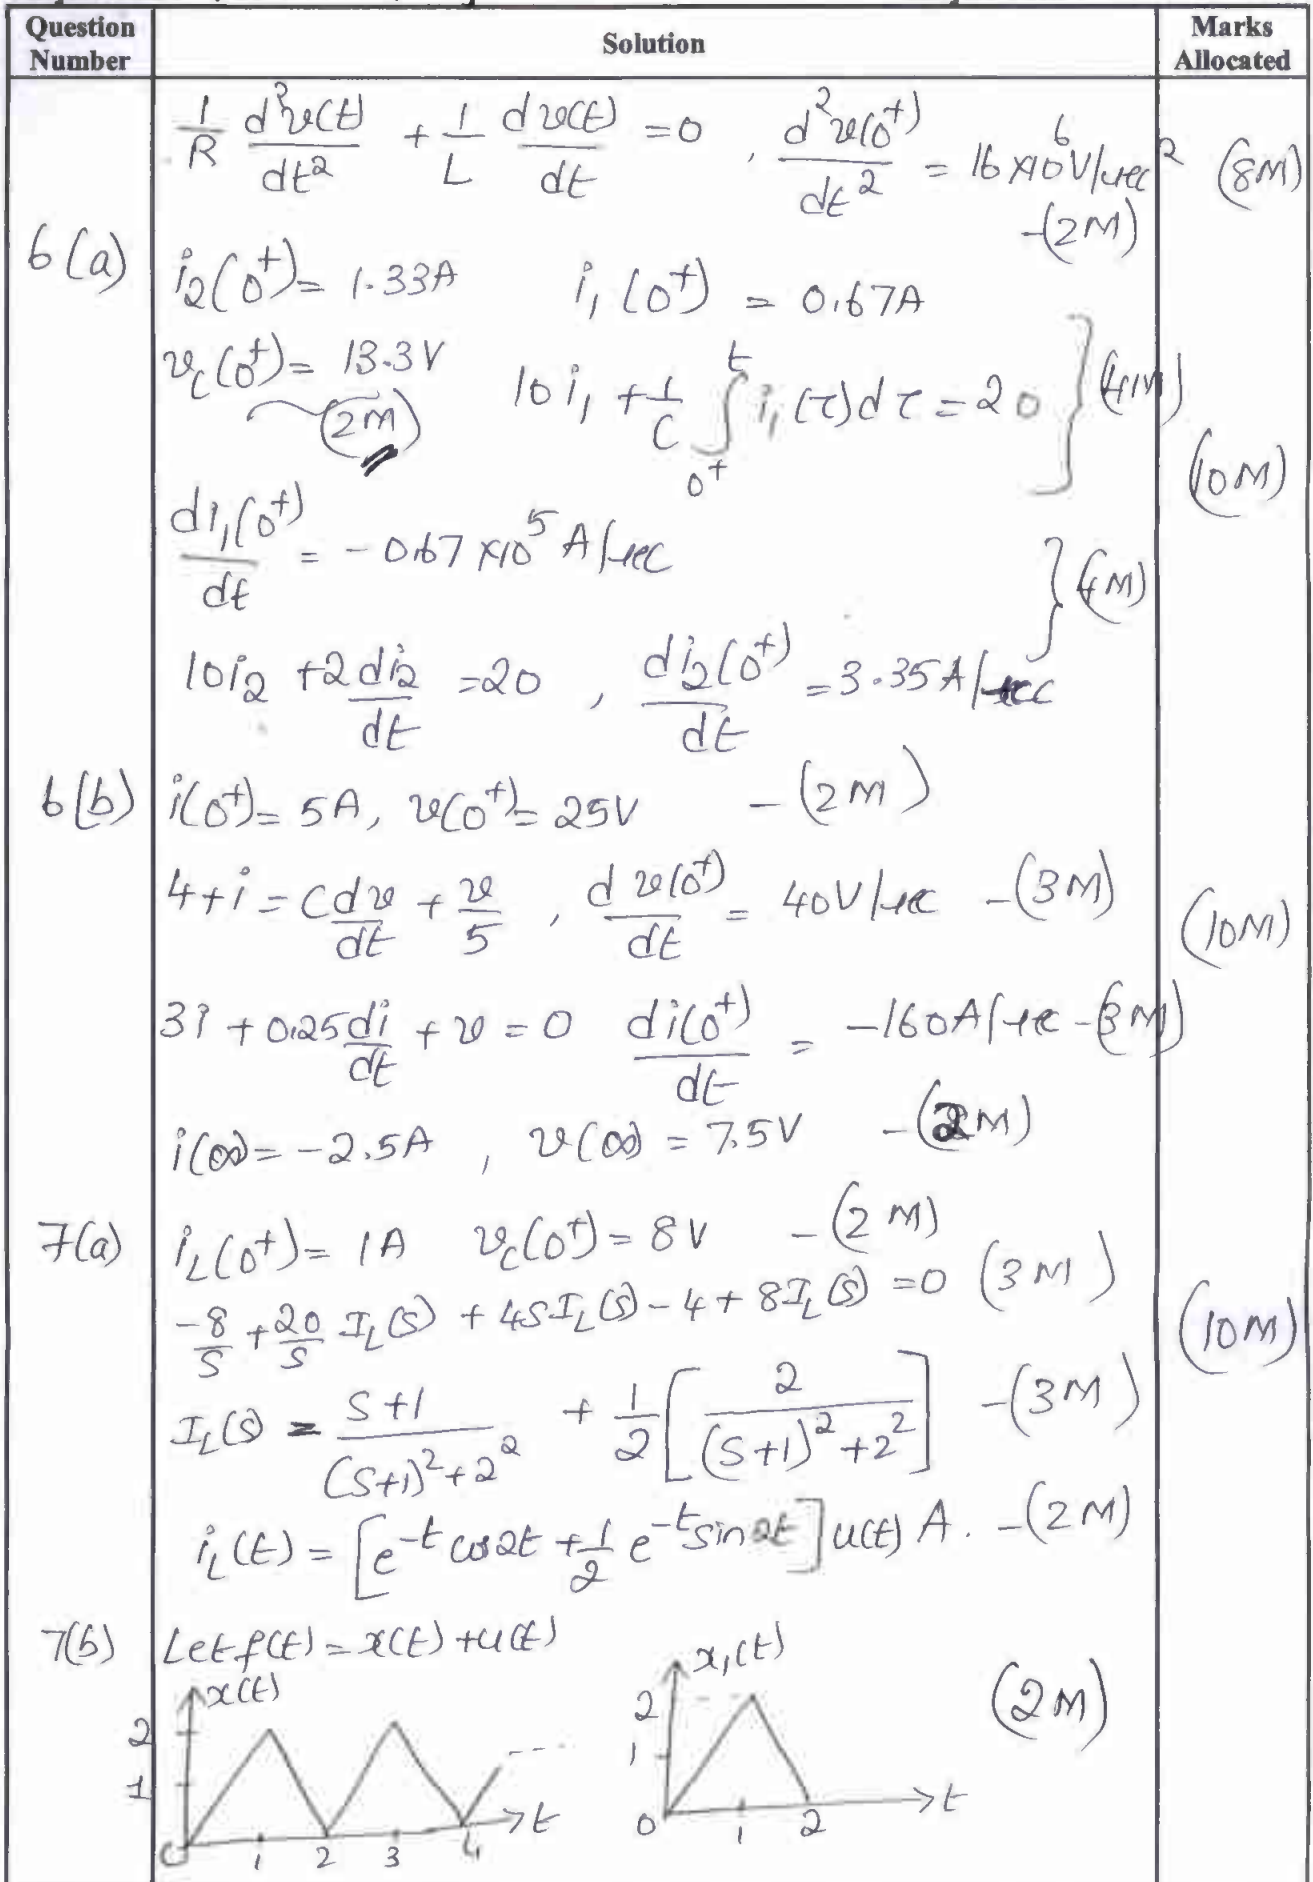 Question Number | Solution | Marks Allocated
1/R d²v(t)/dt² + 1/L dv(t)/dt = 0 , d²v(0⁺)/dt² = 16 x10⁶ V/sec² (8M)
-(2M)
6(a) i₂(0⁺) = 1.33A i₁(0⁺) = 0.67A
v_c(0⁺) = 13.3V 10 i₁ + 1/C ∫₀₊ᵗ i₁(τ)dτ = 20 } (4M)
(2M)
(10M)
di₁(0⁺)/dt = -0.67 x10⁵ A/sec
} (4M)
10i₂ + 2 di₂/dt = 20 , di₂(0⁺)/dt = 3.35 A/sec
6(b) i(0⁺) = 5A, v(0⁺) = 25V - (2M)
4 + i = C dv/dt + v/5 , dv(0⁺)/dt = 40V/sec - (3M)
(10M)
3i + 0.25 di/dt + v = 0 di(0⁺)/dt = -160A/sec - (3M)
i(∞) = -2.5A , v(∞) = 7.5V - (2M)
7(a) i_L(0⁺) = 1A v_c(0⁺) = 8V - (2M)
-8/S + 20/S I_L(S) + 4S I_L(S) - 4 + 8I_L(S) = 0 (3M)
(10M)
I_L(S) = S+1/(S+1)²+2² + 1/2 [2/(S+1)²+2²] - (3M)
i_L(t) = [e^-t cos2t + 1/2 e^-t sin2t] u(t) A. - (2M)
7(b) Let f(t) = x(t) + u(t)
x(t) x₁(t) (2M)
2 2
1 1
0 1 2 3 4 t 0 1 2 t